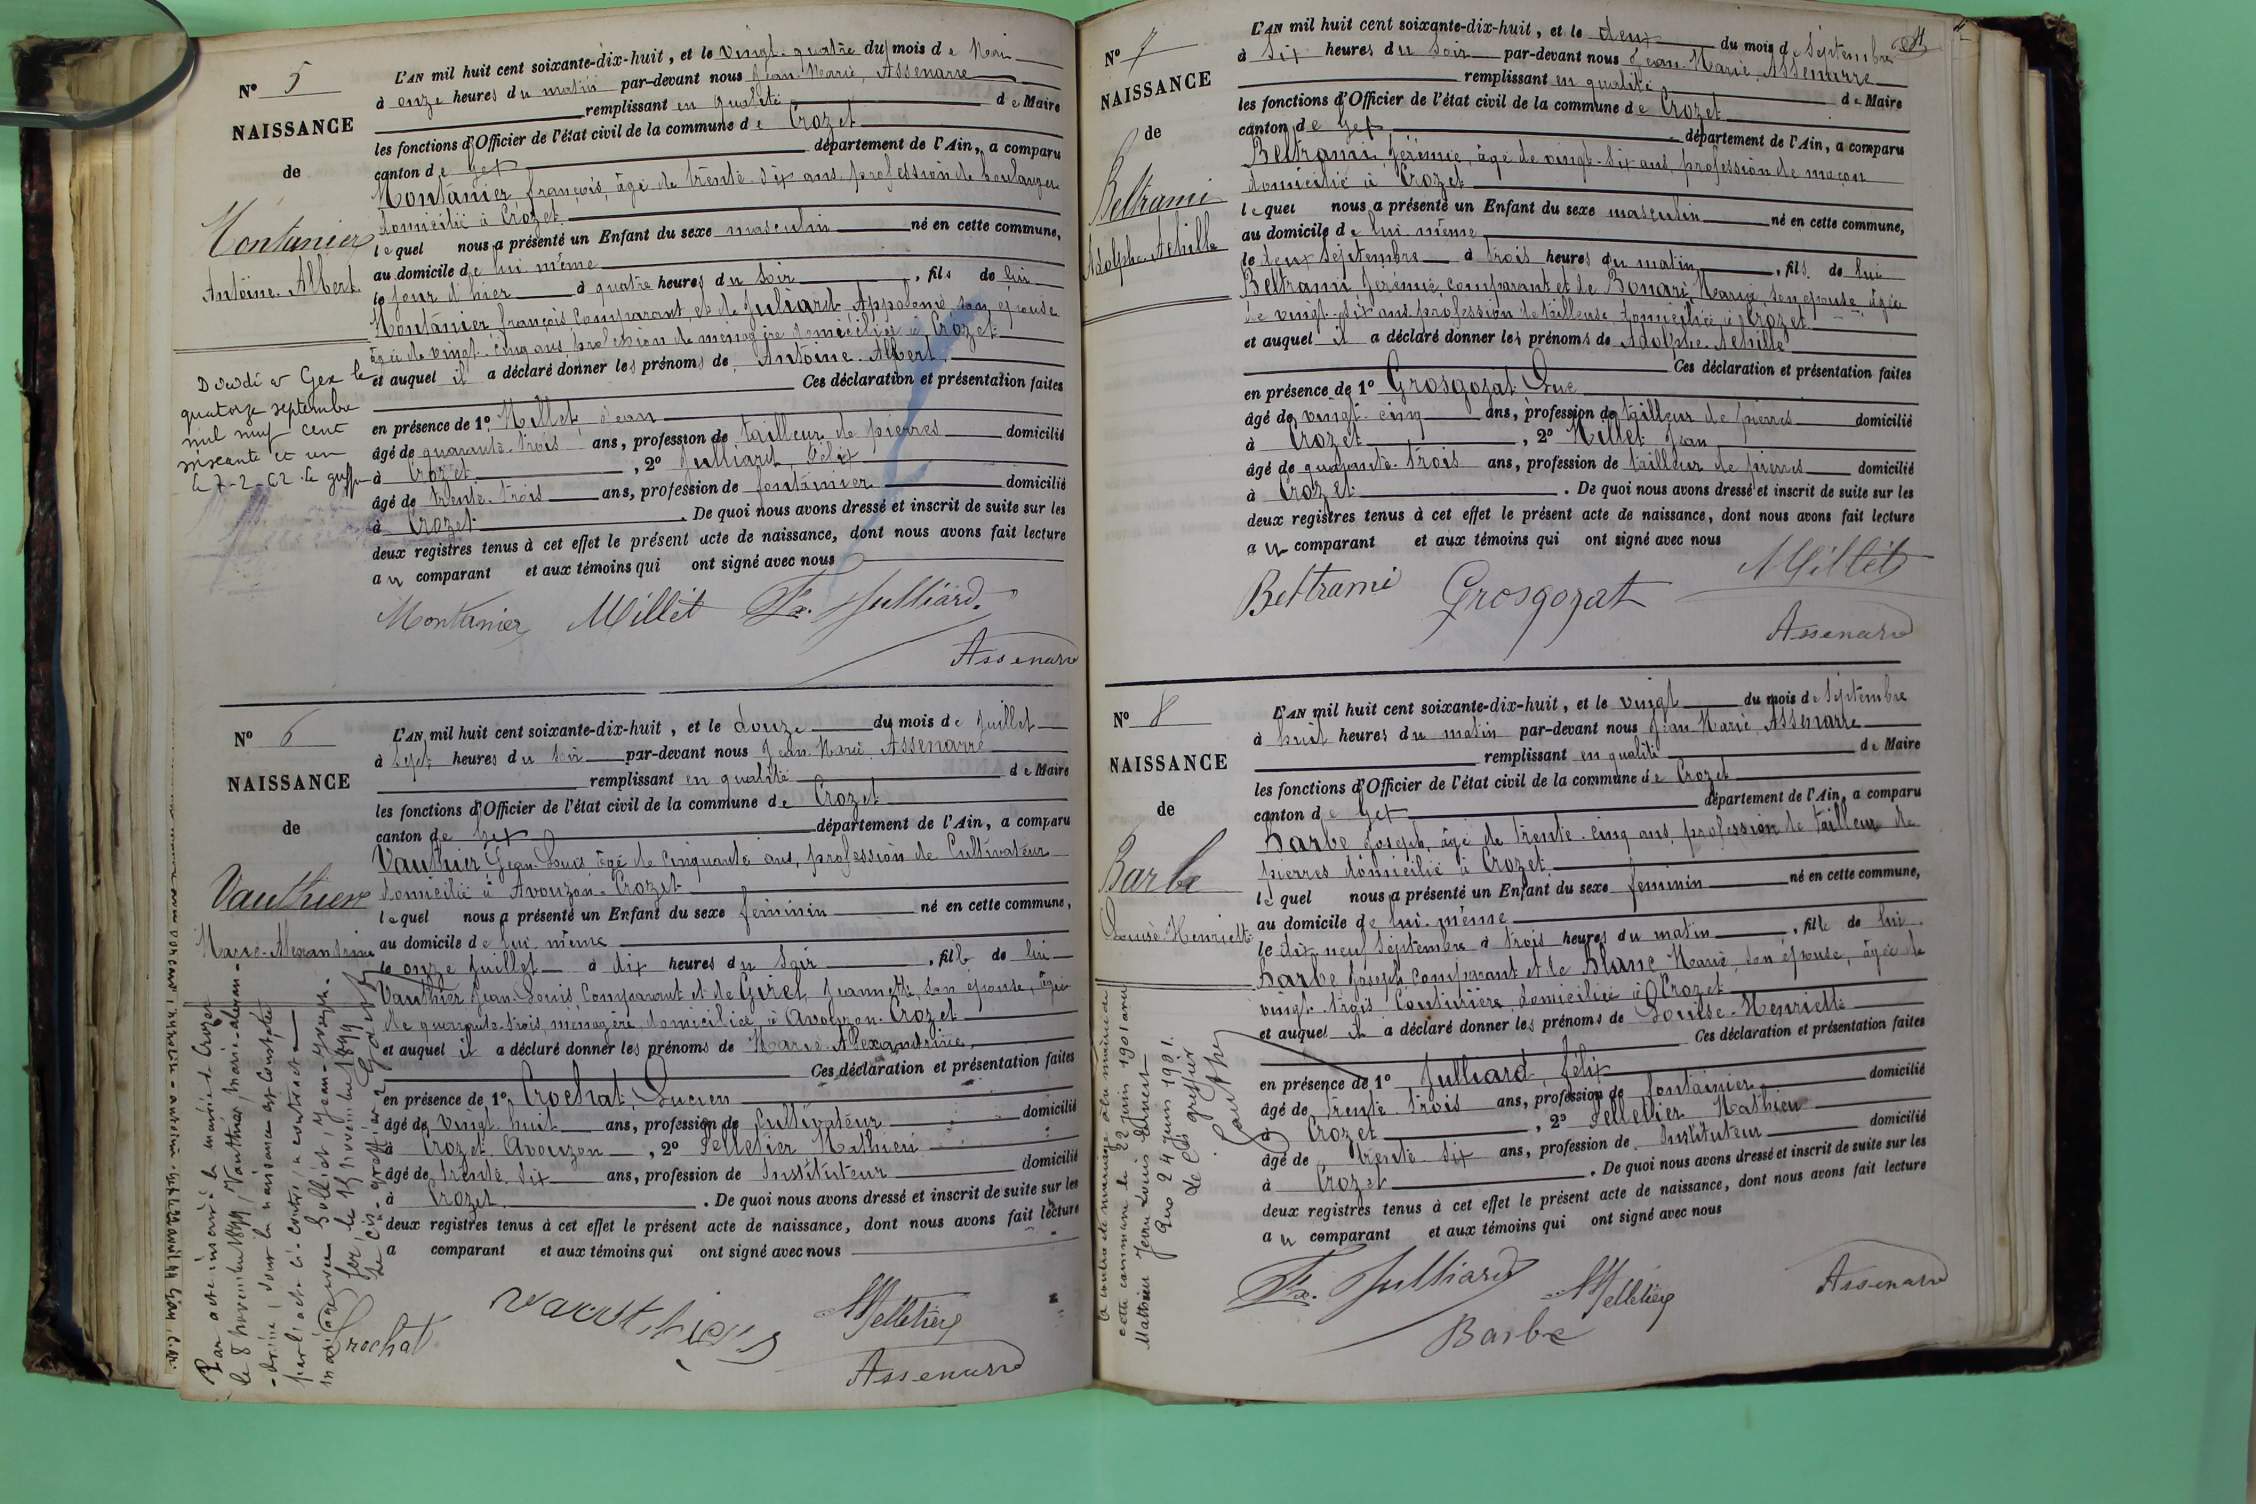 N° 5
NAISSANCE
de
Montanier
Antoine Albert
L'AN mil huit cent soixante-dix-huit, et le vingt-quatre du mois de Mai
à onze heures du matin par-devant nous Jean-Marie Assenarre
remplissant en qualité de Maire
les fonctions d'Officier de l'état civil de la commune de Crozet
canton de Gex département de l'Ain, a comparu
Montanier, françois, âgé de trente-six ans profession de boulanger
domicilié à Crozet
lequel nous a présenté un Enfant du sexe masculin né en cette commune,
au domicile de lui même
le jour d'hier à quatre heures du soir, fils de lui
Montanier, françois comparant, et de Juliard Appolonie son épouse
âgée de vingt-cinq ans profession de ménagère domiciliée à Crozet
et auquel il a déclaré donner les prénoms de Antoine-Albert,
Ces déclaration et présentation faites
en présence de 1° Millet, Jean
âgé de quarante-trois ans, profession de tailleur de pierres domicilié
à Crozet, 2° Julliard, Félix
âgé de trente-trois ans, profession de fontainier domicilié
à Crozet. De quoi nous avons dressé et inscrit de suite sur les
deux registres tenus à cet effet le présent acte de naissance, dont nous avons fait lecture
au comparant et aux témoins qui ont signé avec nous
Montanier Millet Fx. Julliard
Assenarre
Décédé à Gex le
quatorze septembre
mil neuf cent
soixante et un
le 7-2-62 le greffier
N° 6
NAISSANCE
de
Vauthier
Marie-Alexandrine
L'AN mil huit cent soixante-dix-huit, et le douze du mois de Juillet
à sept heures du soir par-devant nous Jean-Marie Assenarre
remplissant en qualité de Maire
les fonctions d'Officier de l'état civil de la commune de Crozet
canton de Gex département de l'Ain, a comparu
Vauthier Jean-Louis âgé de cinquante ans, profession de Cultivateur
domicilié à Avouzon-Crozet
lequel nous a présenté un Enfant du sexe feminin né en cette commune,
au domicile de lui même
le onze Juillet à dix heures du soir, fille de lui
Vauthier Jean-Louis Comparant et de Girel Jeannette, son épouse, âgée
de quarante-trois, ménagère, domiciliée à Avouzon-Crozet
et auquel il a déclaré donner les prénoms de Marie-Alexandrine,
Ces déclaration et présentation faites
en présence de 1° Crochat, Lucien
âgé de vingt huit ans, profession de Cultivateur domicilié
à Crozet Avouzon, 2° Pelletier Mathieu
âgé de trente-six ans, profession de Instituteur domicilié
à Crozet. De quoi nous avons dressé et inscrit de suite sur les
deux registres tenus à cet effet le présent acte de naissance, dont nous avons fait lecture
a comparant et aux témoins qui ont signé avec nous
Crochat Vauthier MPelletier
Assenarre
Par acte inscrit à la mairie de Crozet
le 8 novembre 1899, Vauthier, Marie-Alexan-
-drine, dont la naissance est constatée
par l'acte ci-contre, a contracté
mariage avec Julliat, Jean-Joseph.
Gex, le 15 novembre 1899
Le Cis-greffier
N° 7
NAISSANCE
de
Beltrami
Adolphe-Achille
L'AN mil huit cent soixante-dix-huit, et le deux du mois de Septembre
à six heures du soir par-devant nous Jean-Marie, Assenarre
remplissant en qualité de Maire
les fonctions d'Officier de l'état civil de la commune de Crozet
canton de Gex département de l'Ain, a comparu
Beltrami, Jérémie, âgé de vingt-six ans, profession de maçon
domicilié à Crozet
lequel nous a présenté un Enfant du sexe masculin né en cette commune,
au domicile de lui même
le deux Septembre à trois heures du matin, fils de lui
Beltrami Jérémie, comparant et de Bonari, Marie, son épouse âgée
de vingt-six ans profession de tailleuse, domiciliée à Crozet
et auquel il a déclaré donner les prénoms de Adolphe-Achille
Ces déclaration et présentation faites
en présence de 1° Grosgozat Luc
âgé de vingt-cinq ans, profession de tailleur de pierres domicilié
à Crozet, 2° Millet Jean
âgé de quarante-trois ans, profession de tailleur de pierres domicilié
à Crozet. De quoi nous avons dressé et inscrit de suite sur les
deux registres tenus à cet effet le présent acte de naissance, dont nous avons fait lecture
au comparant et aux témoins qui ont signé avec nous
Beltrami Grosgozat Millet
Assenarre
N° 8
NAISSANCE
de
Barbe
Louise-Henriette
L'AN mil huit cent soixante-dix-huit, et le vingt du mois de Septembre
à huit heures du matin par-devant nous Jean-Marie Assenarre
remplissant en qualité de Maire
les fonctions d'Officier de l'état civil de la commune de Crozet
canton de Gex département de l'Ain, a comparu
Barbe Joseph, âgé de trente-cinq ans, profession de tailleur de
pierres domicilié à Crozet
lequel nous a présenté un Enfant du sexe feminin né en cette commune,
au domicile de lui-même
le dix neuf Septembre à trois heures du matin, fille de lui
Barbe Joseph comparant et de Blanc Marie, son épouse, âgée de
vingt-trois Couturière domiciliée à Crozet
et auquel il a déclaré donner les prénoms de Louise-Henriette
Ces déclaration et présentation faites
en présence de 1° Julliard, félix
âgé de trente-trois ans, profession de fontainier domicilié
à Crozet, 2° Pelletier Mathieu
âgé de trente-six ans, profession de Instituteur domicilié
à Crozet. De quoi nous avons dressé et inscrit de suite sur les
deux registres tenus à cet effet le présent acte de naissance, dont nous avons fait lecture
au comparant et aux témoins qui ont signé avec nous
Fx. Julliard MPelletier Assenarre
Barbe
a contracté mariage à la mairie de
cette commune le 22 juin 1901 avec
Mathieu Jean Louis Ernest
Gex 24 juin 1901.
Le Cis greffier